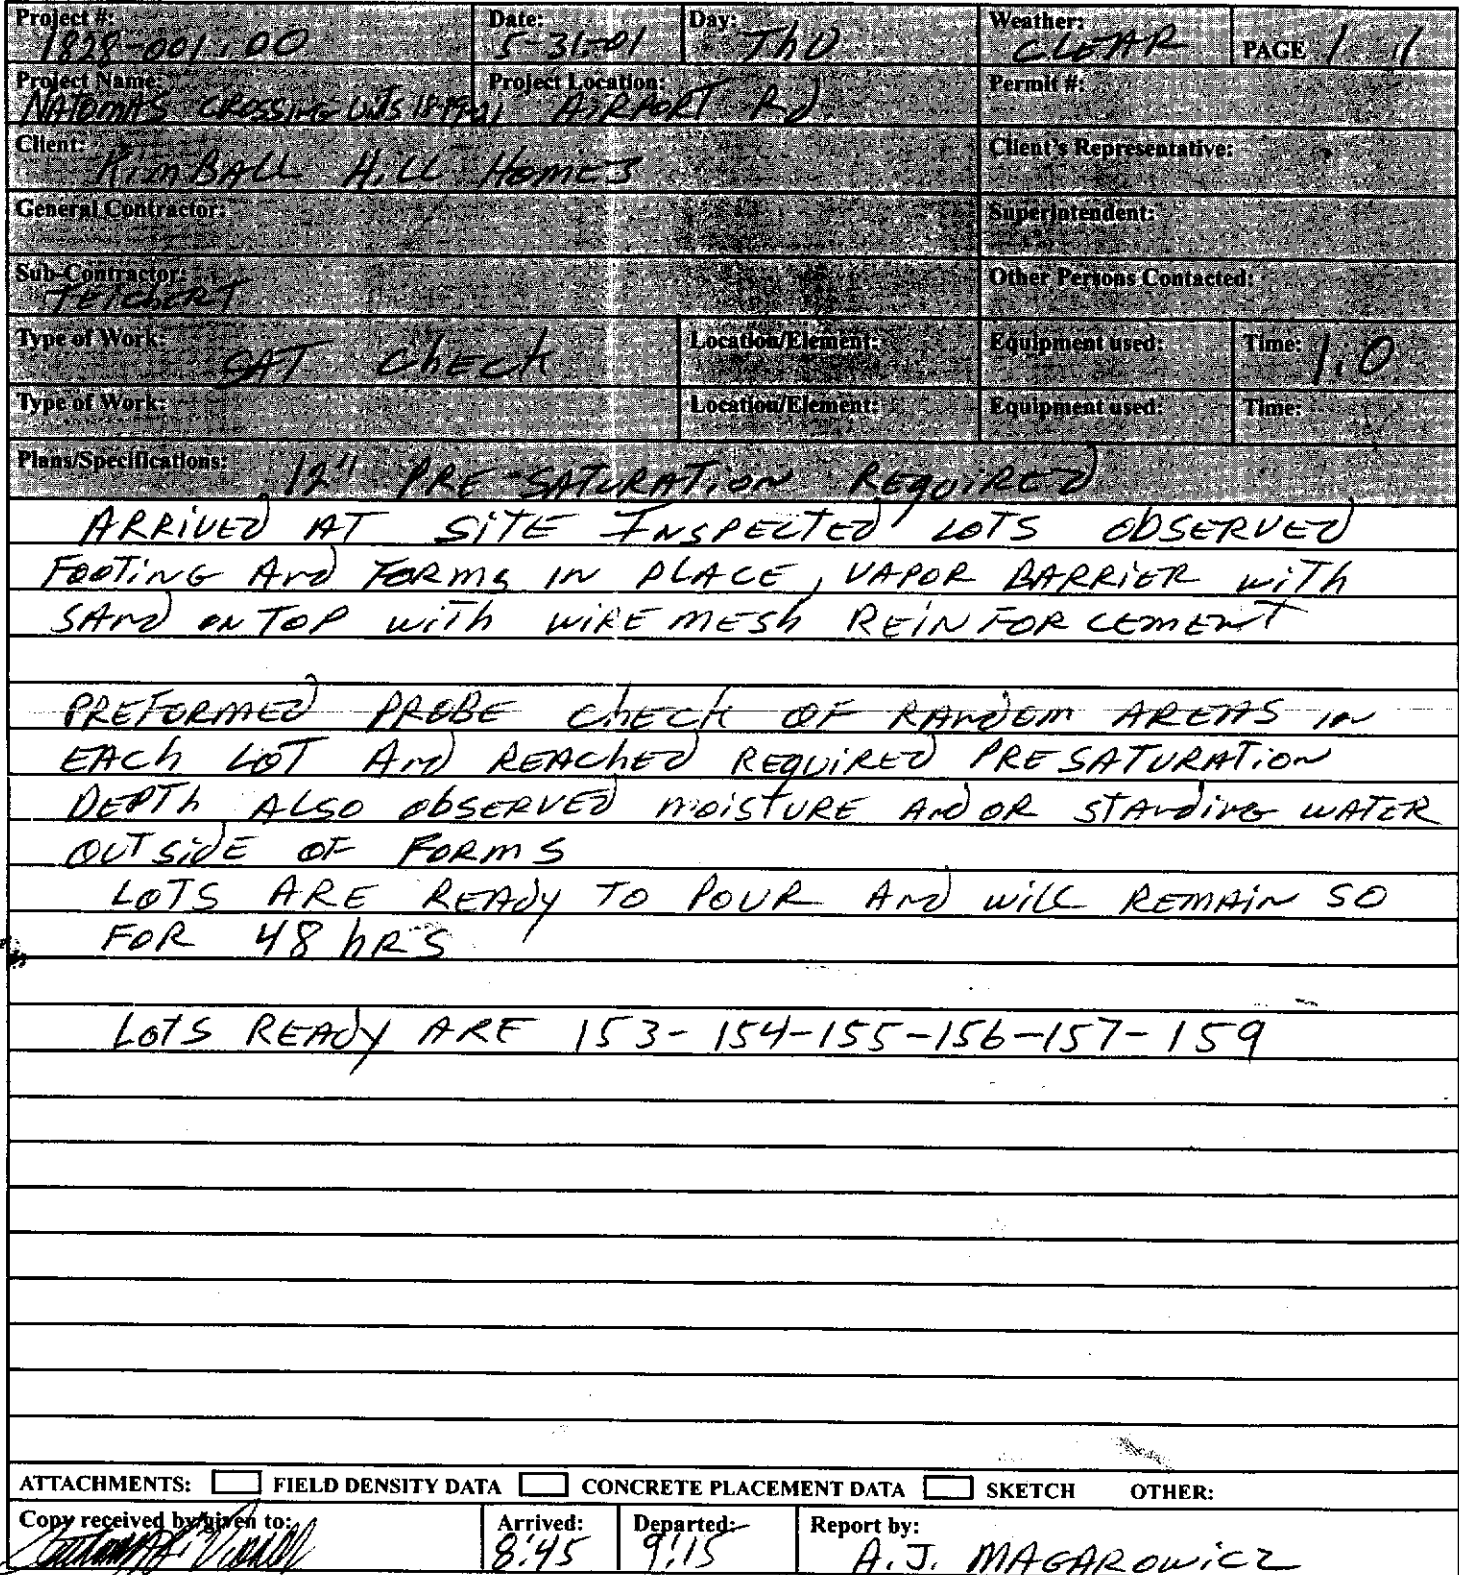 Project #: Date: Day: Weather:
1828-001.00 5-31-01 Thu CLEAR PAGE 1 / 1
Project Name: Project Location: Permit #:
NATOMAS CROSSING AIRPORT Rd
Client: Client's Representative:
KimBALL Hill HomES
General Contractor: Superintendent:
Sub-Contractor: Other Persons Contacted:
TEichERT
Type of Work: Location/Element: Equipment used: Time:
SAT chEck 1.0
Type of Work: Location/Element: Equipment used: Time:
Plans/Specifications: 12" PRE-SATURATION REQUIREd
ARRIVEd AT SiTE INSPECTEd LOTS ObSERVEd
FOOTING ANd FORMS IN PLACE, VAPOR BARRIER wiTh
SANd ON TOP wiTh wiRE mESh REINFORCEMENT
PREFORMEd PROBE chECK OF RANdom AREAS IN
EACh LOT ANd REAChEd REQUIREd PRESATURATION
DEPTh ALSO obSERVEd moiSTURE ANd OR STANdiNG wATER
OUTSidE OF FORMS
LOTS ARE READy TO POUR ANd wiLL REMAIN SO
FOR 48 hRS
LOTS READy ARE 153-154-155-156-157-159
ATTACHMENTS: FIELD DENSITY DATA CONCRETE PLACEMENT DATA SKETCH OTHER:
Copy received by/given to: Arrived: Departed: Report by:
8:45 9:15 A.J. MAGAROwicz